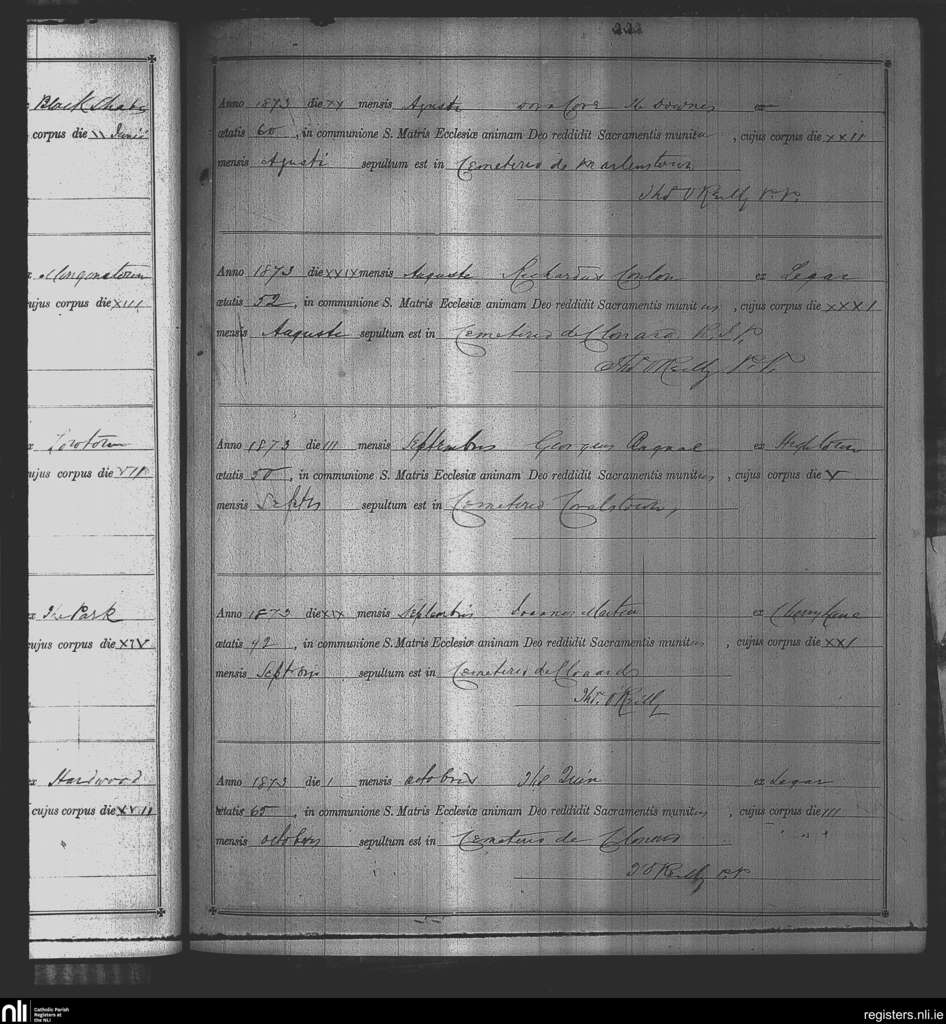 222
Black
corpus die 11 Junii
cujus corpus die XIII
cujus corpus die VII
ex The Park
cujus corpus die XIV
ex Hardwood
cujus corpus die XVII
Anno 1873 die XX mensis Agusti Downes ex
ætatis 60, in communione S. Matris Ecclesiæ animam Deo reddidit Sacramentis munit , cujus corpus die XXII
mensis Agusti sepultum est in Cemeterio de
Thos O Reilly P. P.
Anno 1873 die XXIX mensis Augusti Richardus Conlon ex Legar
ætatis 52, in communione S. Matris Ecclesiæ animam Deo reddidit Sacramentis munitus , cujus corpus die XXXI
mensis Augusti sepultum est in Cemeterio de Clonard R.I.P.
Thos O Reilly P.P.
Anno 1873 die III mensis Septembris Georgius ex
ætatis 50, in communione S. Matris Ecclesiæ animam Deo reddidit Sacramentis munitus , cujus corpus die V
mensis Septris sepultum est in Cemeterio
Anno 1873 die XIX mensis Septembris Joannes Martin ex
ætatis 42, in communione S. Matris Ecclesiæ animam Deo reddidit Sacramentis munitus , cujus corpus die XXI
mensis sepultum est in Cemeterio de Clonard
Thos. O Reilly
Anno 1873 die 1 mensis Octobris Ths Quin ex Legar
ætatis 65, in communione S. Matris Ecclesiæ animam Deo reddidit Sacramentis munitus , cujus corpus die III
mensis Octobris sepultum est in Cemeterio de
T O Reilly P.P.
nli Catholic Parish Registers at the NLI
registers.nli.ie